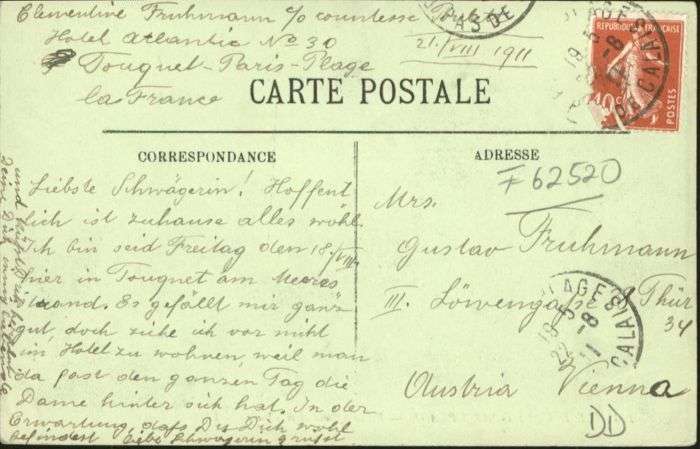 Clementine Fruhmann c/o countesse
Hotel Atlantic No 30
Touquet-Paris-Plage
la France
21./VIII 1911
PAS DE
CALAIS
RÉPUBLIQUE FRANÇAISE
10c
POSTES
CARTE POSTALE
CORRESPONDANCE
Liebste Schwägerin! Hoffent
lich ist zuhause alles wohl.
Ich bin seid Freitag den 18./VIII.
hier in Touquet am Meeres
strand. Es gefällt mir ganz
gut, doch ziehe ich vor nicht
im Hotel zu wohnen weil man
da fast den ganzen Tag die
Dame hinter sich hat. In der
Erwartung, dass Du Dich wohl
befindest liebe Schwägerin grüsst
und
Deine Dich
ADRESSE
F 62520
Mrs.
Gustav Fruhmann
III. Löwengasse 8 Thür
34
Austria Vienna
PLAGE
18-5
22-8
11
CALAIS
DD